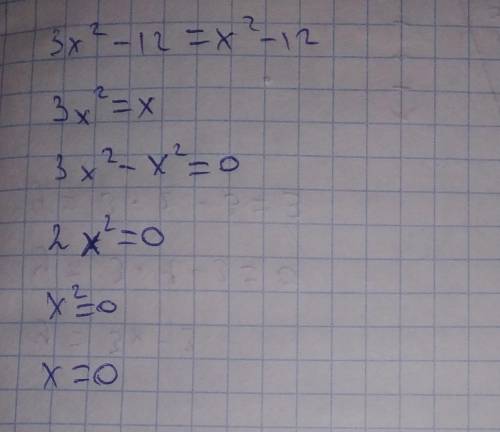 3x² - 12 = x² - 12
3x² = x
3x² - x² = 0
2x² = 0
x² = 0
x = 0